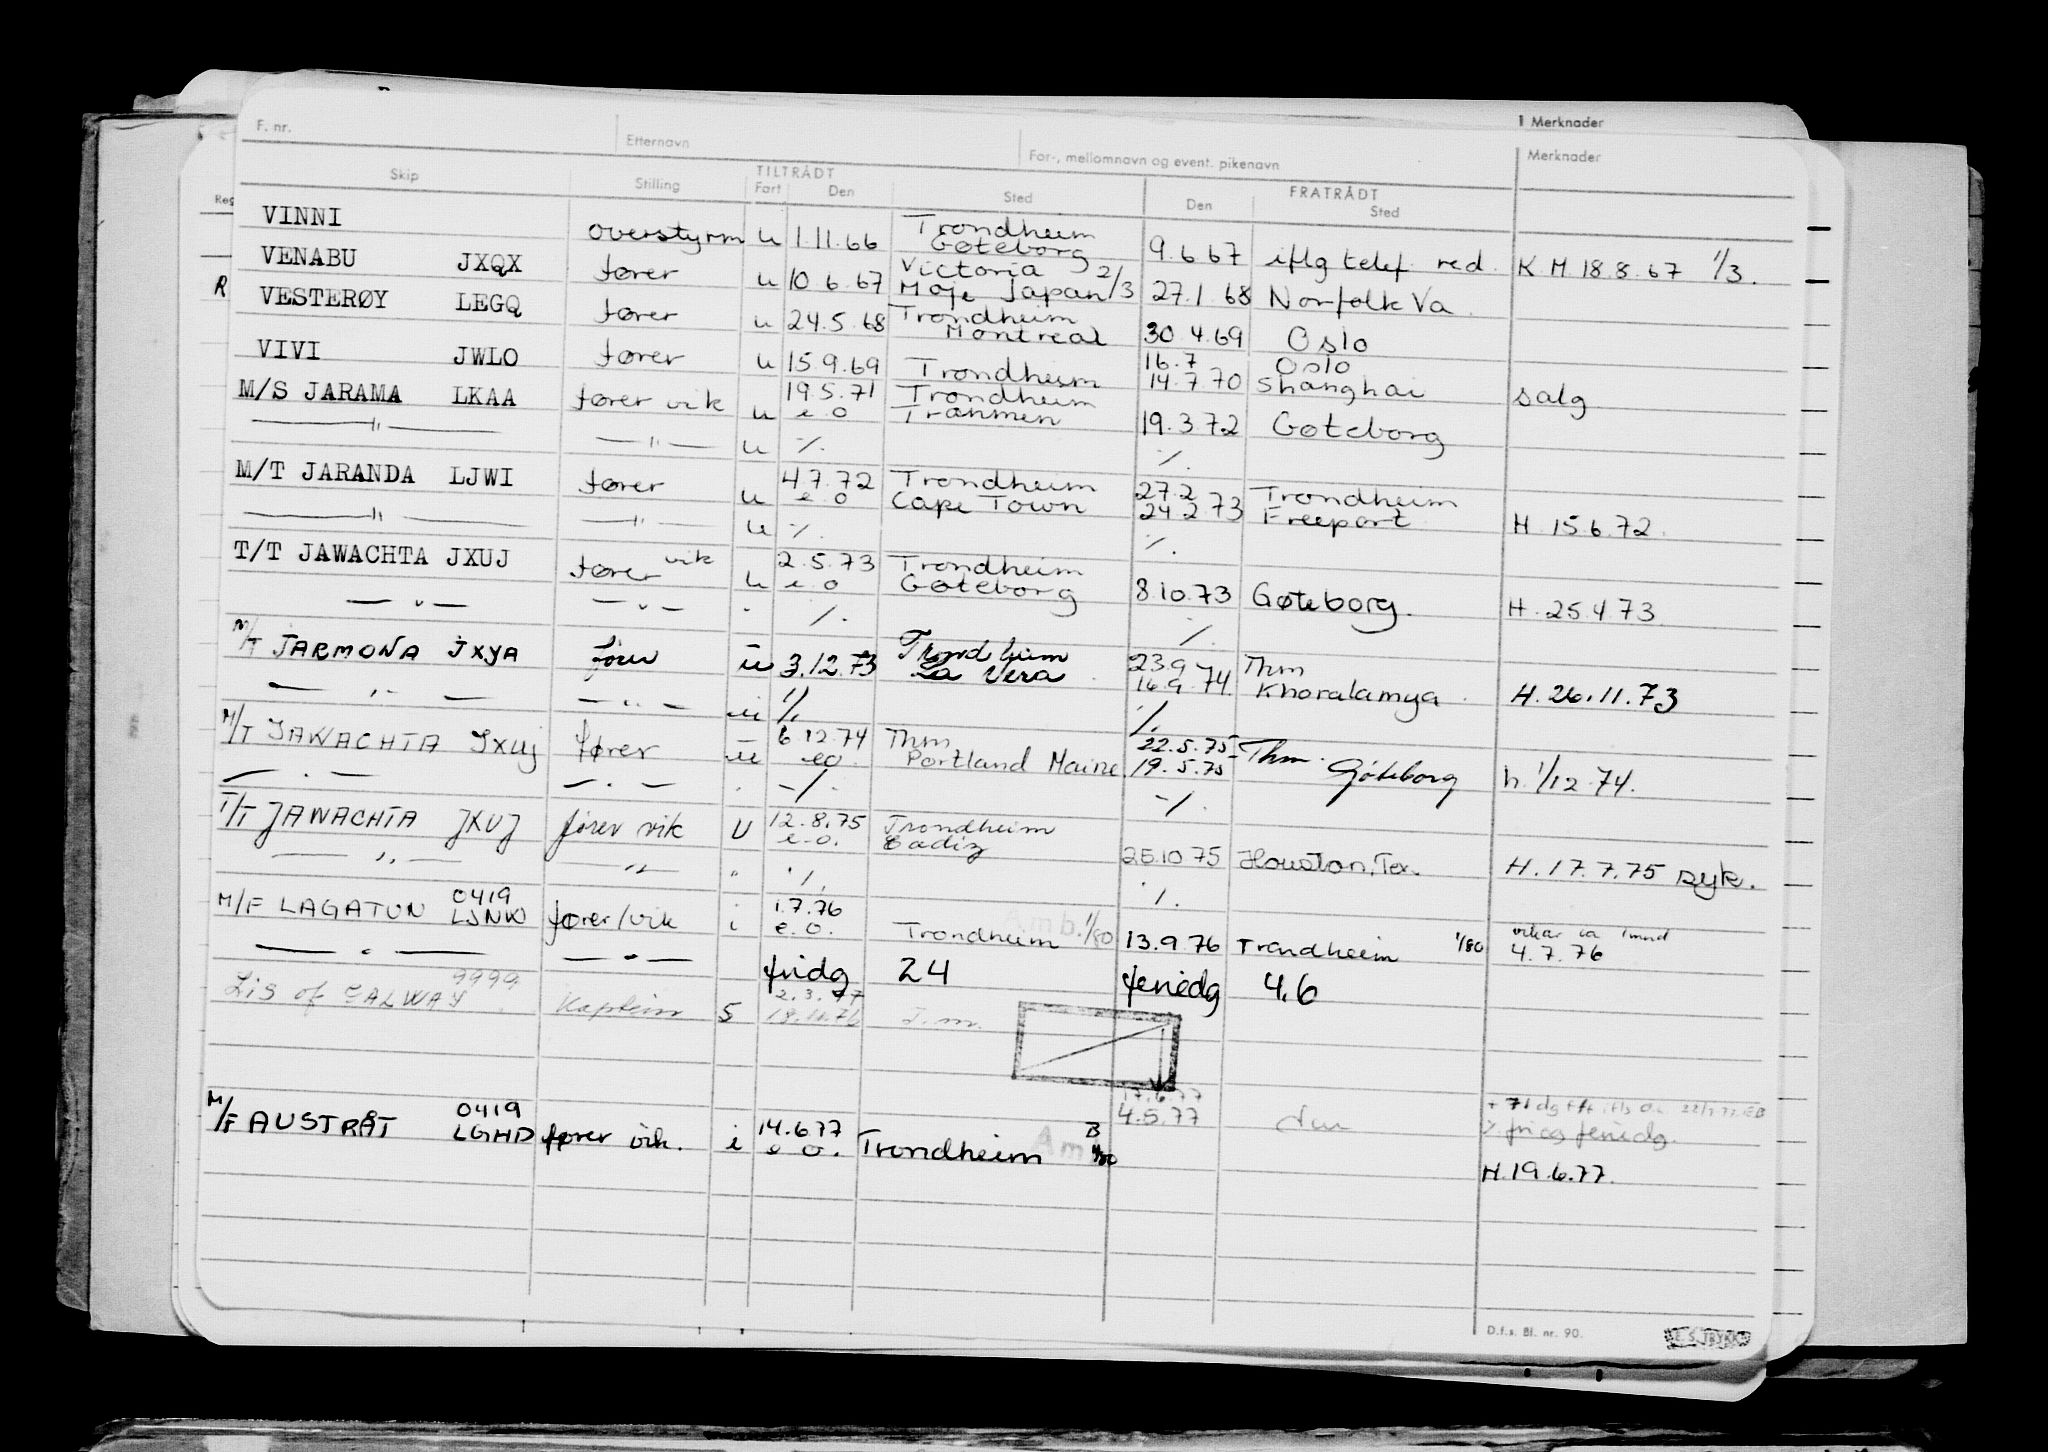 1 Merknader
F. nr.
Etternavn
For-, mellomnavn og event. pikenavn
Merknader
Skip
Stilling
TILTRÅDT
Fart Den
Sted
FRATRÅDT
Den
Sted
Reg
VINNI overstyrm u 1.11.66 Trondheim
Gøteborg 9.6.67 iflg telef. red. K.M. 18.8.67 1/3.
VENABU JXQX fører u 10.6.67 Victoria 2/3
Moje Japan/3 27.1.68 Norfolk Va
R VESTERØY LEGQ fører u 24.5.68 Trondheim
Montreal 30.4.69 Oslo
VIVI JWLO fører u 15.9.69 Trondheim 16.7 Oslo
14.7.70 Shanghai salg
M/S JARAMA LKAA fører vik u 19.5.71 Trondheim
e.o 19.3.72 Gøteborg
—"— —"— u ./. ./.
M/T JARANDA LJWI fører u 4.7.72 Trondheim 27.2 Trondheim
e.o Cape Town 24.2.73 Freeport H. 15.6.72.
—"— —"— u ./. ./.
T/T JAWACHTA JXUJ fører vik u 2.5.73 Trondheim
e.o Gøteborg 8.10.73 Gøteborg. H. 25.4.73
—"— —"— ./. ./.
M/T JARMONA JXYA fører u 3.12.73 Trondheim 23.9 Thm
La Vera 16.9.74 H. 26.11.73
—"— —"— u ./. ./.
M/T JAWACHTA JXUJ fører u 6.12.74 Thm 22.5.75 Thm.
eo. Portland Maine 19.5.75 Gøteborg h. 1/12.74.
—"— —"— ./. ./.
T/T JAWACHTA JXUJ fører vik U 12.8.75 Trondheim
e.o. Cadiz 25.10.75 Houston, Tex. H. 17.7.75 syk.
—"— —"— " ./. ./.
0419
M/F LAGATUN LJNW fører/vik i 1.7.76
e.o. Trondheim Amb. 1/80 13.9.76 Trondheim 1/80 vikar ca 1 mnd
4.7.76
—"— —"— fridg 24 feriedg 4,6
9999
Lis of GALWAY Kaptein S 2.3.77
18.11.76
17.6.77
4.5.77
H. 19.6.77.
0419
M/F AUSTRÅT LGHD fører vik. i 14.6.77
e.o. Trondheim B
1/80
D.f.s. Bl. nr. 90.
E. S. TRYKK